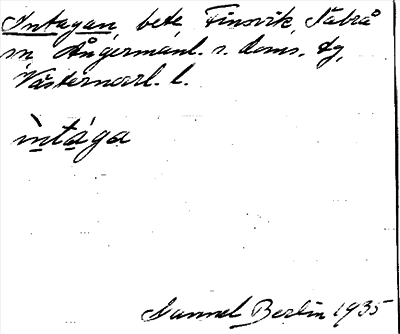 Intagan, bete, Finsvik, Säbrå
sn, Ångermanl. s. doms. dg,
Västernorrl. l.
ìntága
Gunnel Berlin 1935